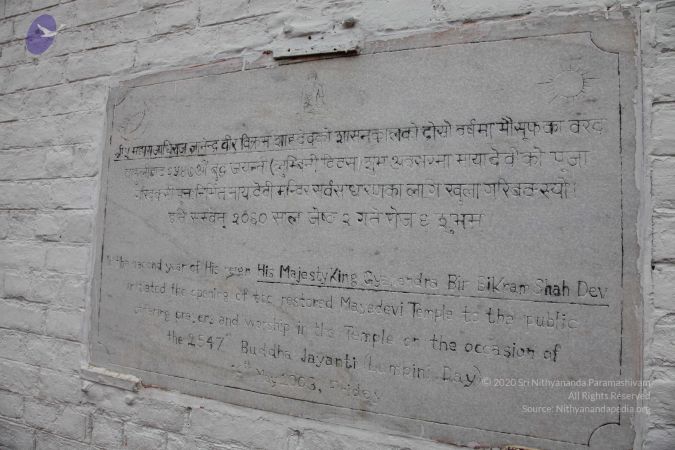 श्री ५ महाराजाधिराज ज्ञानेन्द्र वीर विक्रम शाहदेवको शासनकालको दोस्रो वर्षमा मौसूफका वरद
२५४७ औं बुद्ध जयन्ती (लुम्बिनी दिवस) शुभ अवसरमा मायादेवीको पूजा
मायादेवी मन्दिर सर्वसाधारणका लागि खुला गरिबक्स्यो।
इति सम्बत् २०६० साल जेष्ठ २ गते रोज ६ शुभम्।
In the second year of His reign His Majesty King Gyanendra Bir Bikram Shah Dev
initiated the opening of the restored Mayadevi Temple to the public
offering prayers and worship in the Temple on the occasion of
the 2547th Buddha Jayanti (Lumpini Day)
May 2003, Friday
© 2020 Sri Nithyananda Paramashivam
All Rights Reserved
Source: Nithyanandapedia.org